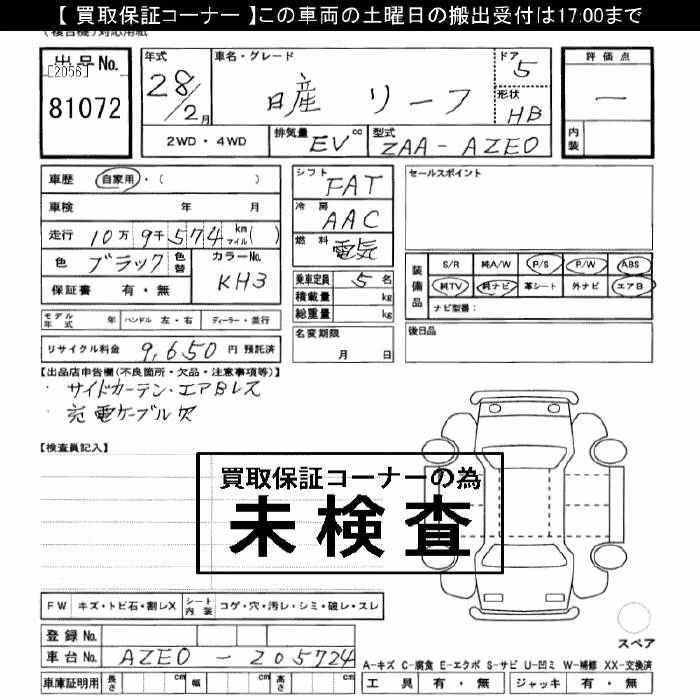 【 買取保証コーナー 】この車両の土曜日の搬出受付は17:00まで
出品No.
[2056]
81072
年式
28/2月
車名・グレード
日産 リーフ
ドア
5
形状
HB
評価点
―
内装
2WD・4WD
排気量
EV cc
型式
ZAA-AZE0
車歴
自家用・( )
車検 年 月
走行 10万9千574 km マイル( )
色 ブラック
色替
カラーNo.
KH3
保証書 有・無
シフト
FAT
冷房
AAC
燃料
電気
乗車定員 5 名
積載量 kg
総重量 kg
セールスポイント
装備品
S/R 純A/W P/S P/W ABS
純TV 純ナビ 革シート 外ナビ エアB
ナビ型番:
モデル年式 年
ハンドル 左・右
ディーラー・並行
名変期限
月 日
後日品
リサイクル料金 9,650 円 預託済
【出品店申告欄(不良箇所・欠品・注意事項等)】
・サイドカーテン・エアBレス
・充電ケーブル欠
【検査員記入】
買取保証コーナーの為
未検査
FW キズ・トビ石・割レX
シート内装 コゲ・穴・汚レ・シミ・破レ・スレ
スペア
登録No.
車台No. AZE0-205724
A-キズ C-腐食 E-エクボ S-サビ U-凹ミ W-補修 XX-交換済
車庫証明用 長さ cm 幅 cm 高さ cm
工具 有・無 ジャッキ 有・無